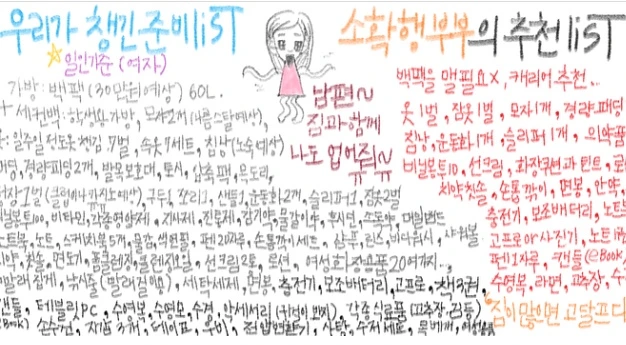 우리가 챙긴 준비list
일인기준 (여자)
가방: 백팩 (30만원예상) 60L.
+ 세컨백: 학생용가방, 모자2개 (나름스탈예상),
일주일정도옷챙김.7벌, 속옷7세트, 침낭(노숙예상)
패딩, 경량패딩2개, 발목보호대, 토시, 압축팩, 목도리,
정장1벌 구두, 쪼리1, 샌들1, 운동화2개, 슬리퍼1, 잠옷2벌
비닐봉투100, 비타민, 각종영양제, 지사제, 진통제, 감기약, 물갈이약, 후시딘, 소독약, 대일밴드
노트북, 노트, 스케치북5개, 물감, 색연필, 펜20자루, 손톱깎이세트, 샴푸, 린스, 바디워시, 샤워볼
치약, 칫솔, 면도기, 폼클렌징, 선크림2통, 로션, 여성화장용품20여가지...
빨래집게, 낚시줄 세탁세제, 면봉, 충전기, 보조배터리, 고프로, 책3권,
캔들, 테블릿PC, 수영복, 수영모, 수경, 악세서리 각종식료품 (고추장, 라면등)
(eBook) 손수건, 지갑3개, 테이프, 우비, 전압변환기, 사탕, 수저세트, 목베개,
남편~
짐과함께
나도 업어줘~
소확행부부의 추천list
백팩을 맬 필요X, 캐리어 추천...
옷1벌, 잠옷1벌, 모자1개, 경량패딩
침낭, 운동화1개, 슬리퍼1개, 의약품
비닐봉투10, 선크림, 화장쿠션과 틴트,
치약칫솔, 손톱깎이, 면봉, 안약,
충전기, 보조배터리, 노트북
고프로or사진기, 노트1권
펜1자루, 캔들, eBook,
수영복, 라면, 고추장,
짐이 많으면 고달프다